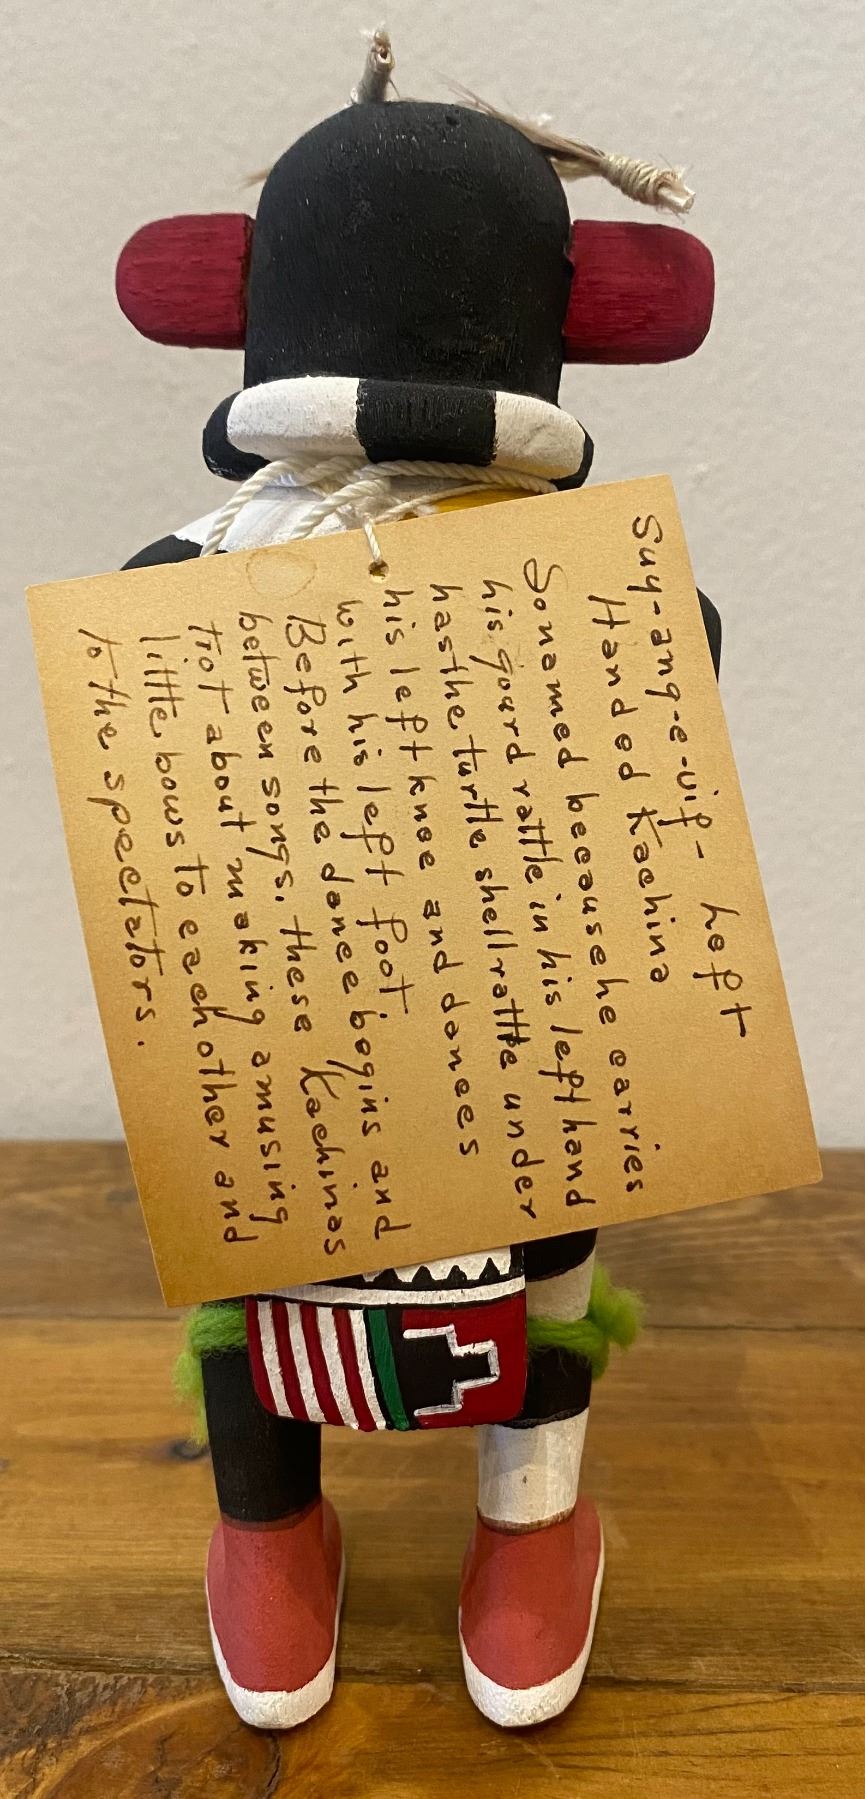 Suy-ang-e-vif- Left
Handed Kachina
So named because he carries
his gourd rattle in his left hand
has the turtle shell rattle under
his left knee and dances
with his left foot.
Before the dance begins and
between songs, these Kachinas
trot about making amusing
little bows to each other and
to the spectators.